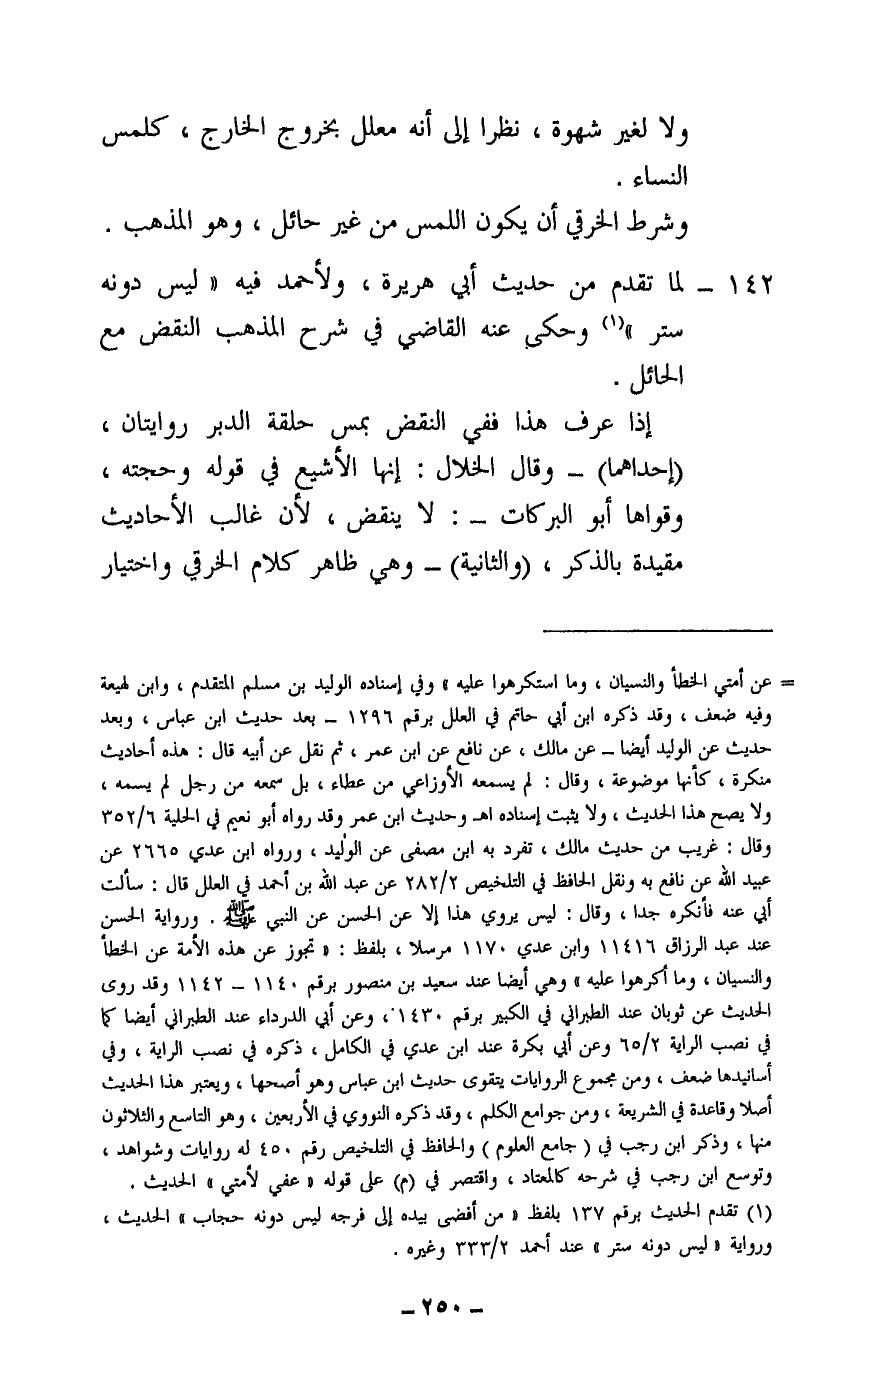 ولا لغير شهوة ، نظرا إلى أنه معلل بخروج الخارج ، كلمس
النساء .
وشرط الخرقي أن يكون اللمس من غير حائل ، وهو المذهب .
١٤٢ – لما تقدم من حديث أبي هريرة ، ولأحمد فيه « ليس دونه
ستر »(١) وحكي عنه القاضي في شرح المذهب النقض مع
الحائل .
إذا عرف هذا ففي النقض بمس حلقة الدبر روايتان ،
(إحداهما) – وقال الخلال : إنها الأشيع في قوله وحجته ،
وقواها أبو البركات – : لا ينقض ، لأن غالب الأحاديث
مقيدة بالذكر ، (والثانية) – وهي ظاهر كلام الخرقي واختيار
= عن أمتي الخطأ والنسيان ، وما استكرهوا عليه » وفي إسناده الوليد بن مسلم المتقدم ، وابن لهيعة
وفيه ضعف ، وقد ذكره ابن أبي حاتم في العلل برقم ١٢٩٦ – بعد حديث ابن عباس ، وبعد
حديث عن الوليد أيضا – عن مالك ، عن نافع عن ابن عمر ، ثم نقل عن أبيه قال : هذه أحاديث
منكرة ، كأنها موضوعة ، وقال : لم يسمعه الأوزاعي من عطاء ، بل سمعه من رجل لم يسمه ،
ولا يصح هذا الحديث ، ولا يثبت إسناده اهـ وحديث ابن عمر وقد رواه أبو نعيم في الحلية ٣٥٢/٦
وقال : غريب من حديث مالك ، تفرد به ابن مصفى عن الوليد ، ورواه ابن عدي ٢٦٦٥ عن
عبيد الله عن نافع به ونقل الحافظ في التلخيص ٢٨٢/٢ عن عبد الله بن أحمد في العلل قال : سألت
أبي عنه فأنكره جدا ، وقال : ليس يروي هذا إلا عن الحسن عن النبي ﷺ . ورواية الحسن
عند عبد الرزاق ١١٤١٦ وابن عدي ١١٧٠ مرسلا ، بلفظ : « تجوز عن هذه الأمة عن الخطأ
والنسيان ، وما أكرهوا عليه » وهي أيضا عند سعيد بن منصور برقم ١١٤٠ – ١١٤٢ وقد روى
الحديث عن ثوبان عند الطبراني في الكبير برقم ١٤٣٠ ، وعن أبي الدرداء عند الطبراني أيضا كما
في نصب الراية ٦٥/٢ وعن أبي بكرة عند ابن عدي في الكامل ، ذكره في نصب الراية ، وفي
أسانيدها ضعف ، ومن مجموع الروايات يتقوى حديث ابن عباس وهو أصحها ، ويعتبر هذا الحديث
أصلا وقاعدة في الشريعة ، ومن جوامع الكلم ، وقد ذكره النووي في الأربعين ، وهو التاسع والثلاثون
منها ، وذكر ابن رجب في ( جامع العلوم ) والحافظ في التلخيص رقم ٤٥٠ له روايات وشواهد ،
وتوسع ابن رجب في شرحه كالمعتاد ، واقتصر في (م) على قوله « عفي لأمتي » الحديث .
(١) تقدم الحديث برقم ١٣٧ بلفظ « من أفضى بيده إلى فرجه ليس دونه حجاب » الحديث ،
ورواية « ليس دونه ستر » عند أحمد ٣٣٣/٢ وغيره .
– ٢٥٠ –